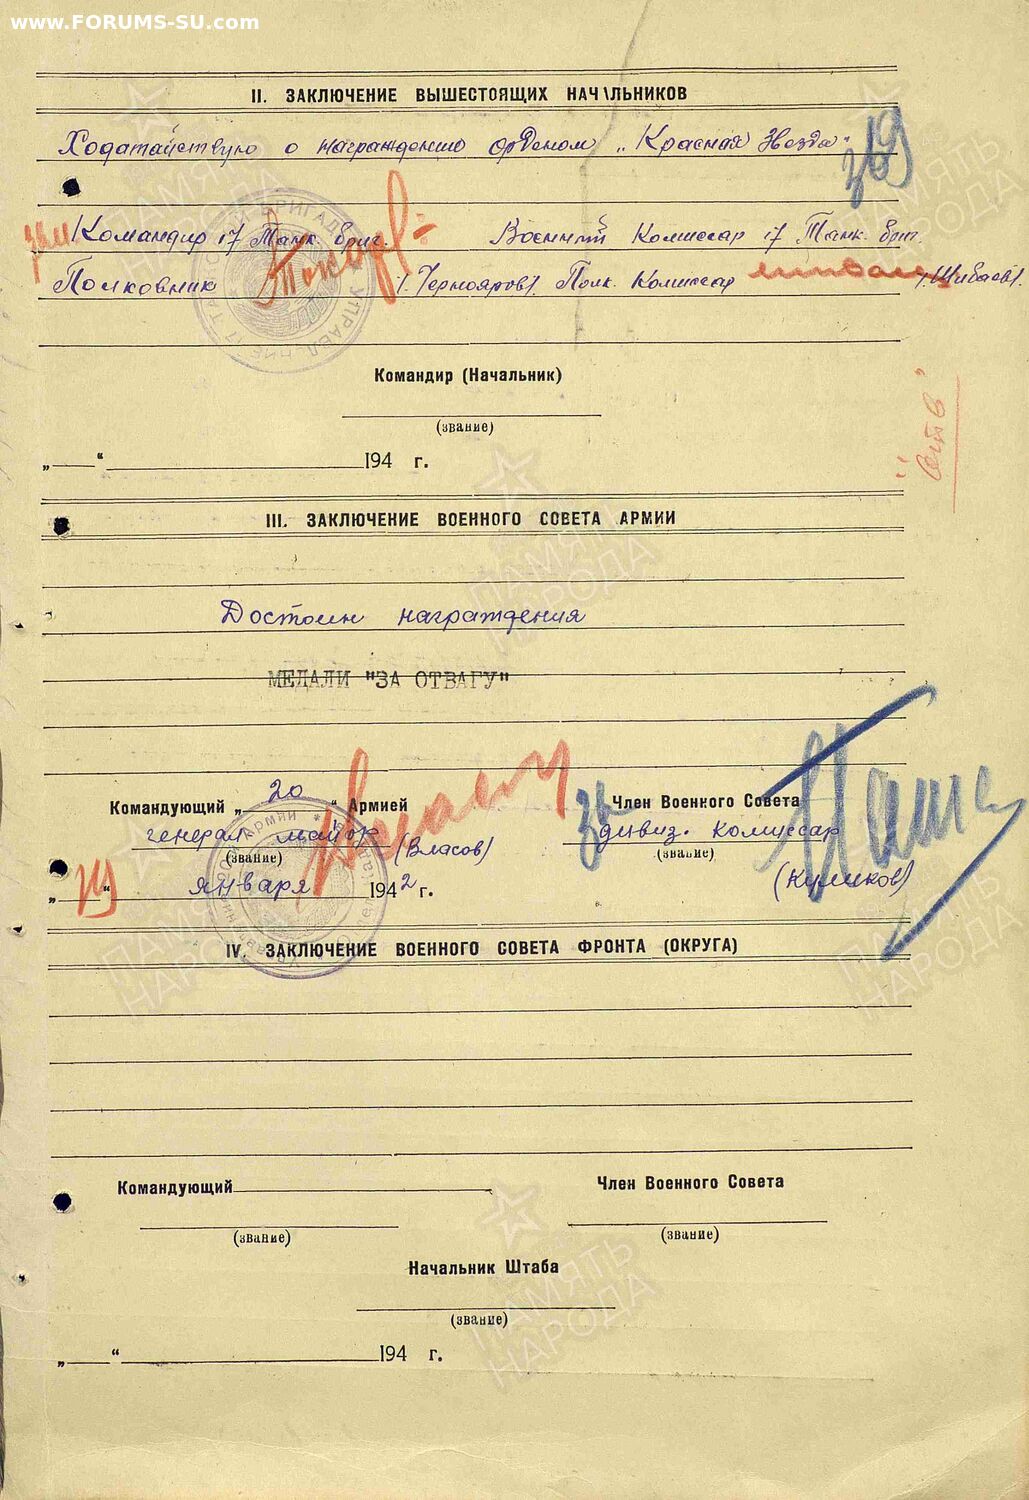 www.FORUMS-SU.com
II. ЗАКЛЮЧЕНИЕ ВЫШЕСТОЯЩИХ НАЧАЛЬНИКОВ
Ходатайствую о награждению орденом „Красная Звезда"
369
зам. Командир 17 Танк. бриг. Военный Комиссар 17 Танк. бриг.
Полковник /Чернояров/. Полк. Комиссар /Шибаев/.
Командир (Начальник)
(звание)
„ “ 194 г.
„Отв"
III. ЗАКЛЮЧЕНИЕ ВОЕННОГО СОВЕТА АРМИИ
Достоин награждения
МЕДАЛИ "ЗА ОТВАГУ"
Командующий „ 20 “ Армией Член Военного Совета
генерал майор (Власов) дивиз. комиссар
(звание) (звание)
„ “ января 1942 г. (Куликов)
IV. ЗАКЛЮЧЕНИЕ ВОЕННОГО СОВЕТА ФРОНТА (ОКРУГА)
Командующий Член Военного Совета
(звание) (звание)
Начальник Штаба
(звание)
„ “ 194 г.
ПАМЯТЬ НАРОДА